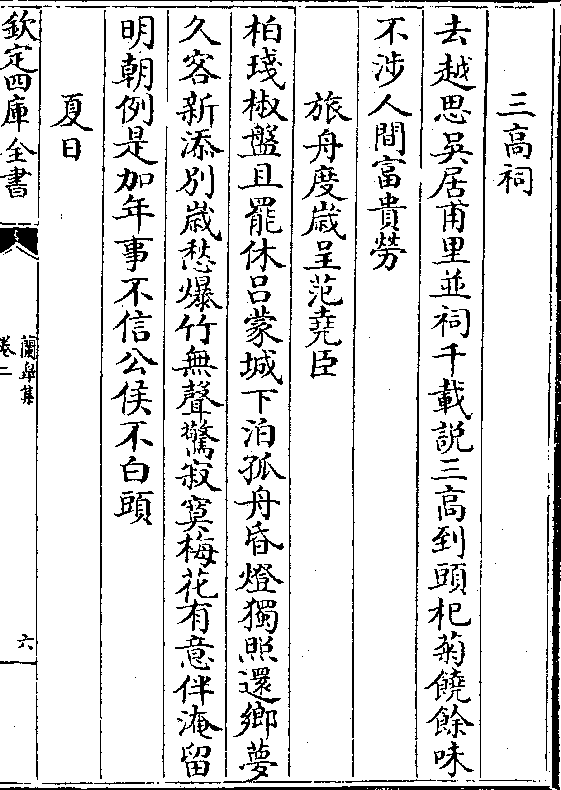 三高祠
去越思吳居甫里並祠千載説三高到頭杞菊饒餘味
不涉人間富貴勞
旅舟度歲呈范堯臣
柏琖椒盤且罷休吕蒙城下泊孤舟昏燈獨照還鄉夢
久客新添别歲愁爆竹無聲驚寂寞梅花有意伴淹留
明朝例是加年事不信公侯不白頭
夏日
欽定四庫全書
蘭皐集
卷二
六